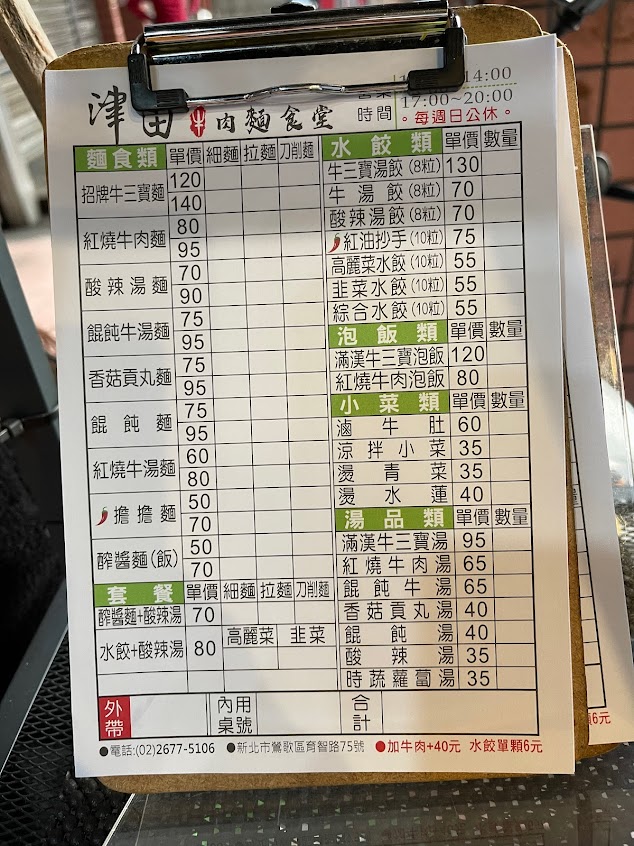 津田牛肉麵食堂
14:00
時間 17:00~20:00
。每週日公休。
麵食類 單價 細麵 拉麵 刀削麵
招牌牛三寶麵 120
140
紅燒牛肉麵 80
95
酸辣湯麵 70
90
餛飩牛湯麵 75
95
香菇貢丸麵 75
95
餛飩麵 75
95
紅燒牛湯麵 60
80
擔擔麵 50
70
醡醬麵(飯) 50
70
套餐 單價 細麵 拉麵 刀削麵
醡醬麵+酸辣湯 70
水餃+酸辣湯 80 高麗菜 韭菜
水餃類 單價 數量
牛三寶湯餃(8粒) 130
牛湯餃(8粒) 70
酸辣湯餃(8粒) 70
紅油抄手(10粒) 75
高麗菜水餃(10粒) 55
韭菜水餃(10粒) 55
綜合水餃(10粒) 55
泡飯類 單價 數量
滿漢牛三寶泡飯 120
紅燒牛肉泡飯 80
小菜類 單價 數量
滷牛肚 60
涼拌小菜 35
燙青菜 35
燙水蓮 40
湯品類 單價 數量
滿漢牛三寶湯 95
紅燒牛肉湯 65
餛飩牛湯 65
香菇貢丸湯 40
餛飩湯 40
酸辣湯 35
時蔬蘿蔔湯 35
外帶 內用桌號 合計
●電話:(02)2677-5106 ●新北市鶯歌區育智路75號 ●加牛肉+40元 水餃單顆6元
6元